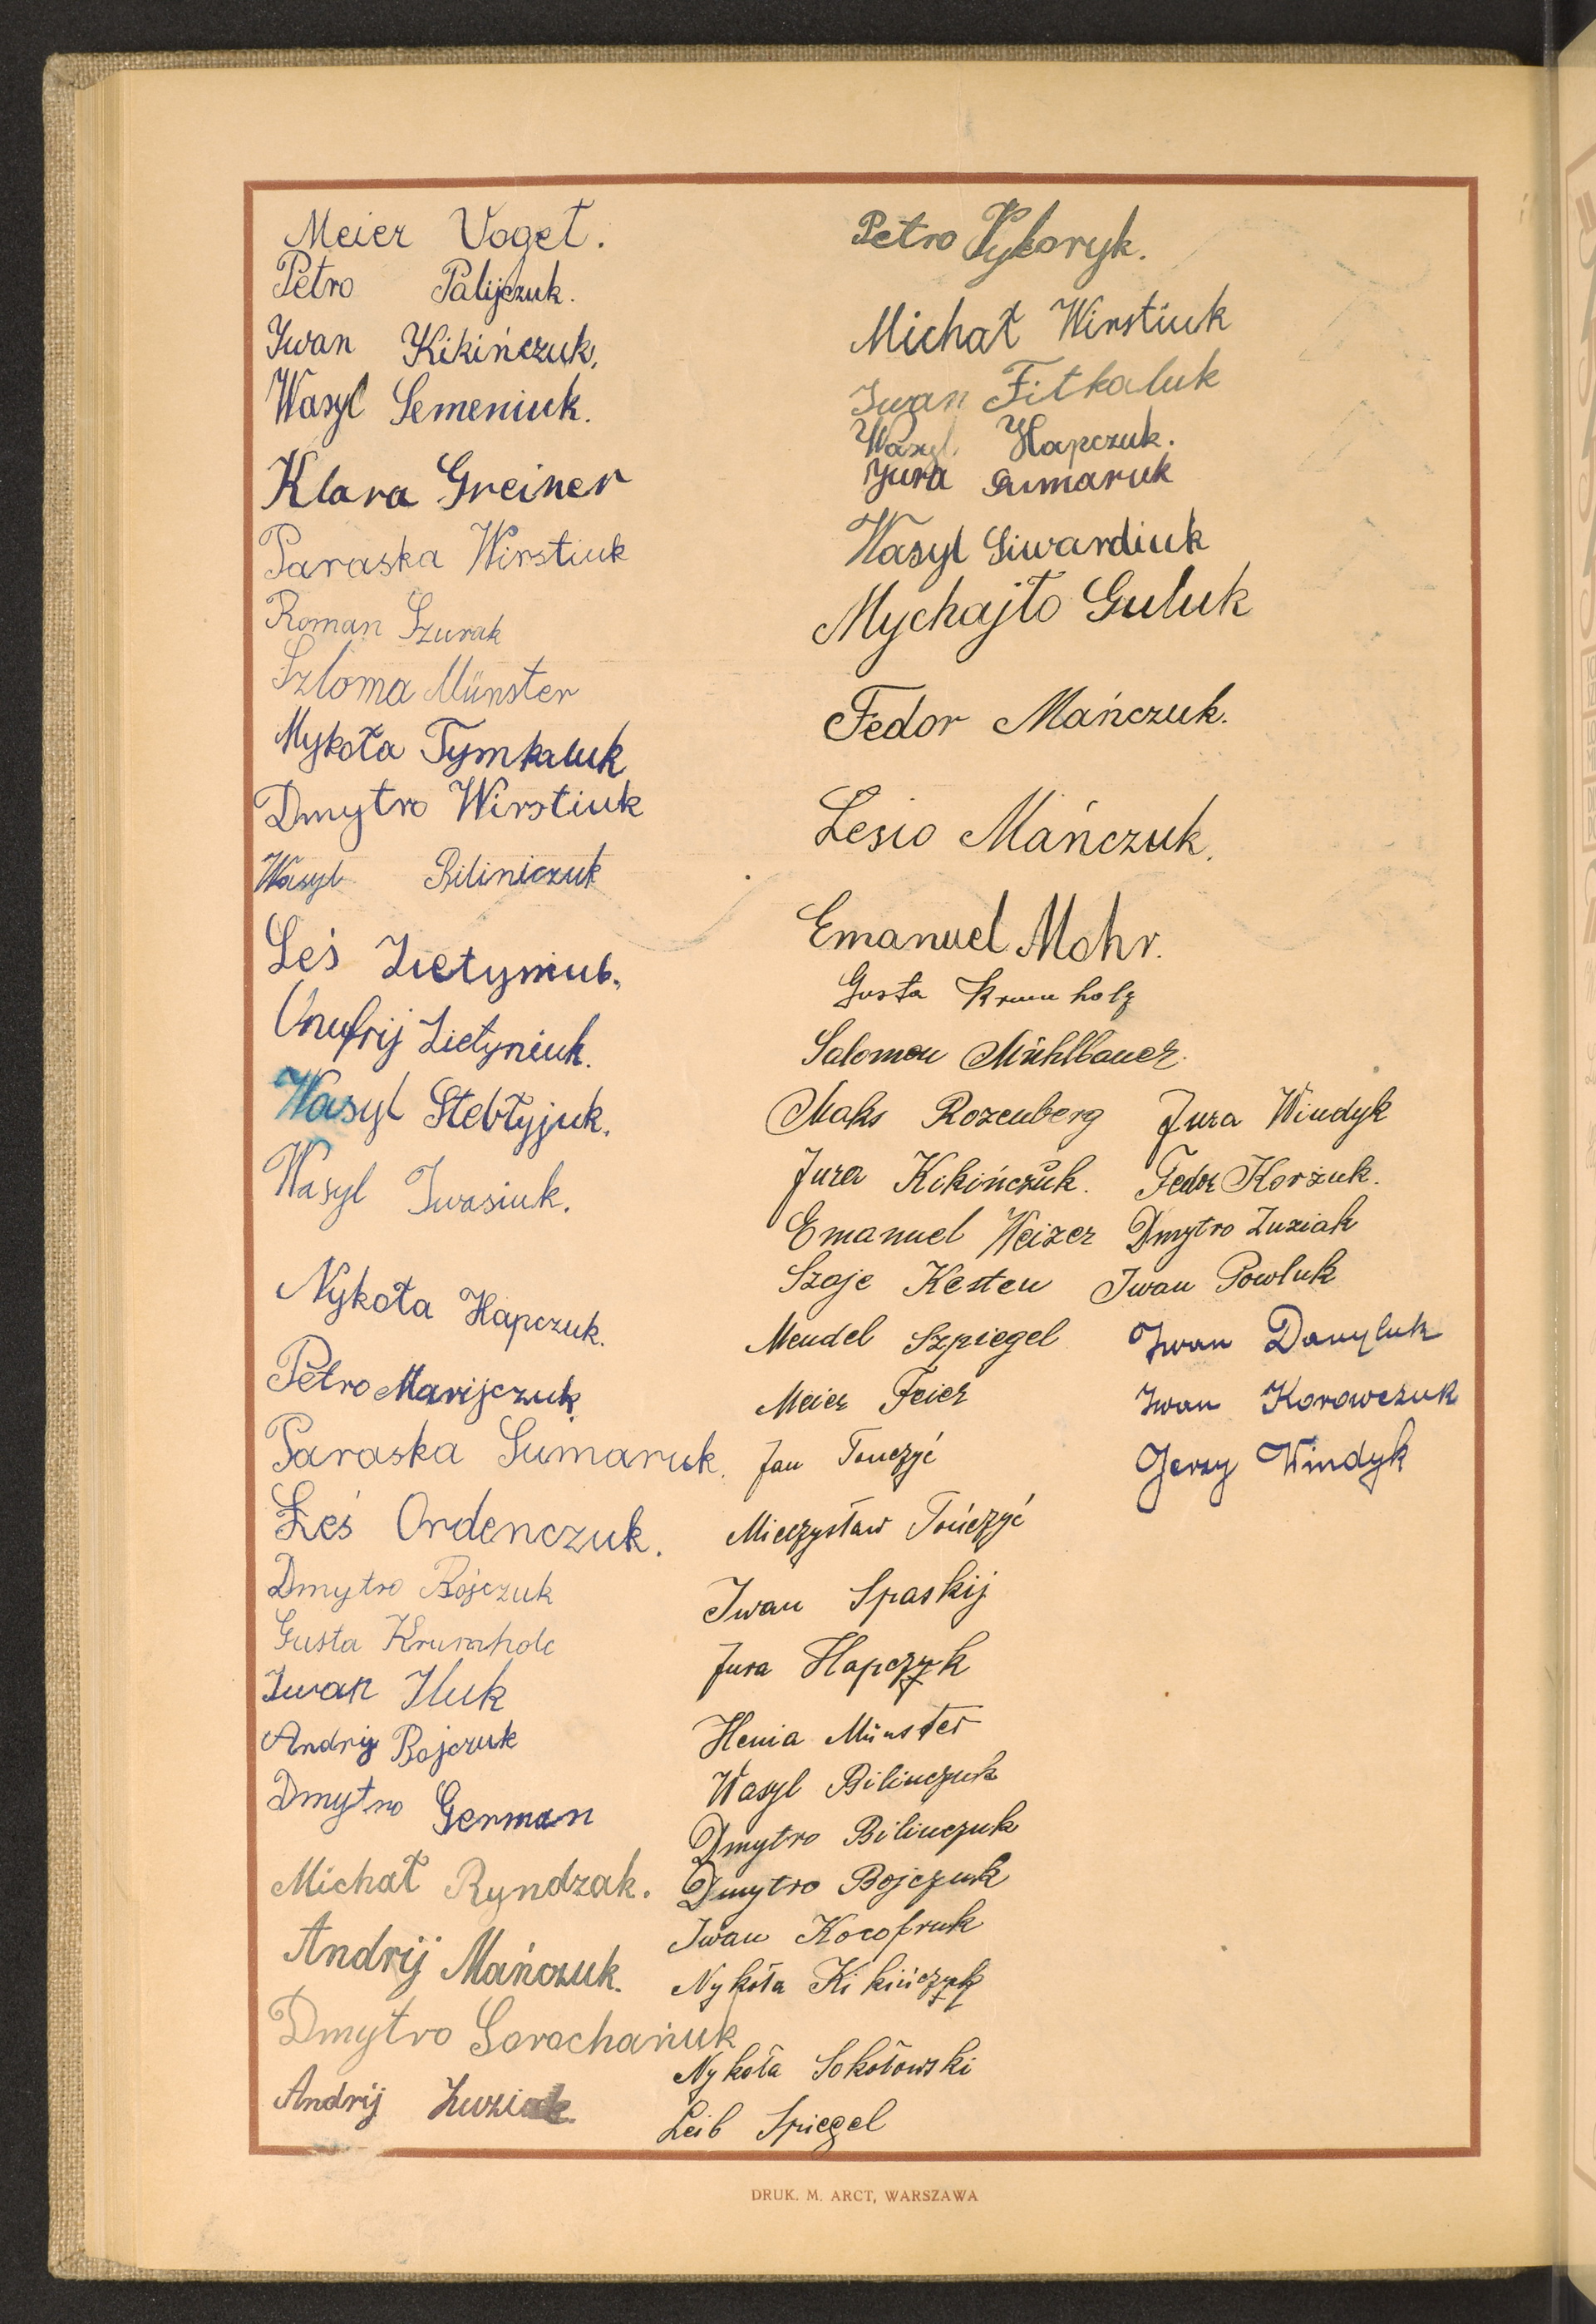 Meier Vogel.
Petro Palijczuk.
Iwan Kikińczuk.
Wasyl Semeniuk.
Klara Greiner
Paraska Wirstiuk
Roman Szurak
Szloma Münster
Mykoła Tymkaluk
Dmytro Wirstiuk
Wasyl Biliniczuk
Leś
Onufrij Lietyniuk.
Wasyl Stebłyjuk.
Wasyl Iwasiuk.
Nykoła Hapczuk.
Petro Marijczuk.
Paraska Sumaruk.
Łeś Ordenczuk.
Dmytro Bojczuk
Gusta Krumholc
Iwan Iluk
Andrij Bojczuk
Dmytro German
Michał Ryndzak.
Andrij Mańczuk.
Dmytro Sorochaniuk
Andrij Zuziak.
Petro
Michał Wirstiuk
Iwan Fitkaluk
Wasyl Hapczuk.
Jura Sumaruk
Wasyl Siwardiuk
Mychajło Guluk
Fedor Mańczuk.
Lesio Mańczuk.
Emanuel Mohr.
Gusta Krumholz
Salomon Mühlbauer.
Maks Rozenberg
Jura Kikińczuk.
Emanuel Weizer
Szaje Kesten
Mendel Szpiegel
Meier Feier
Jan Tończyć
Mieczysław Tończyć
Iwan Spaskij
Jura Hapczuk
Henia Münster
Wasyl Bilinczuk
Dmytro Bilinczuk
Dmytro Bojczuk
Iwan
Nykoła Kikińczuk
Nykoła Sokołowski
Leib Spiegel
Jura Windyk
Fedor Korżuk.
Dmytro Zuziak
Iwan Powluk
Iwan Danyluk
Iwan Korowczuk
Jerzy Windyk
DRUK. M. ARCT, WARSZAWA